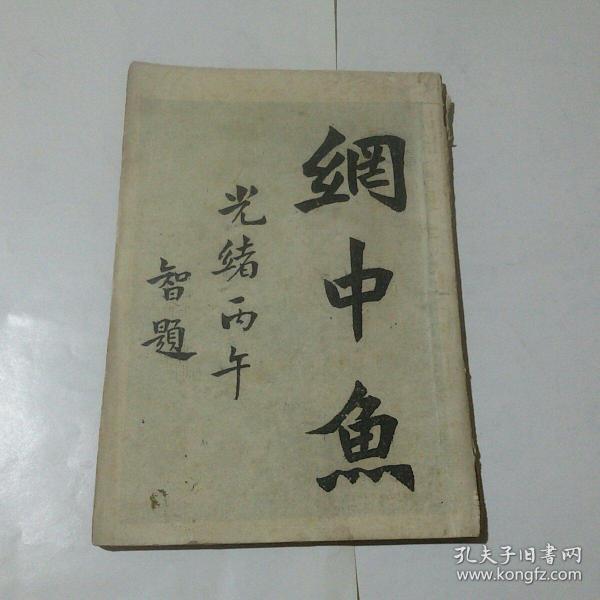 網中魚
光緒丙午
智題
孔夫子旧書网
www.kongfz.com